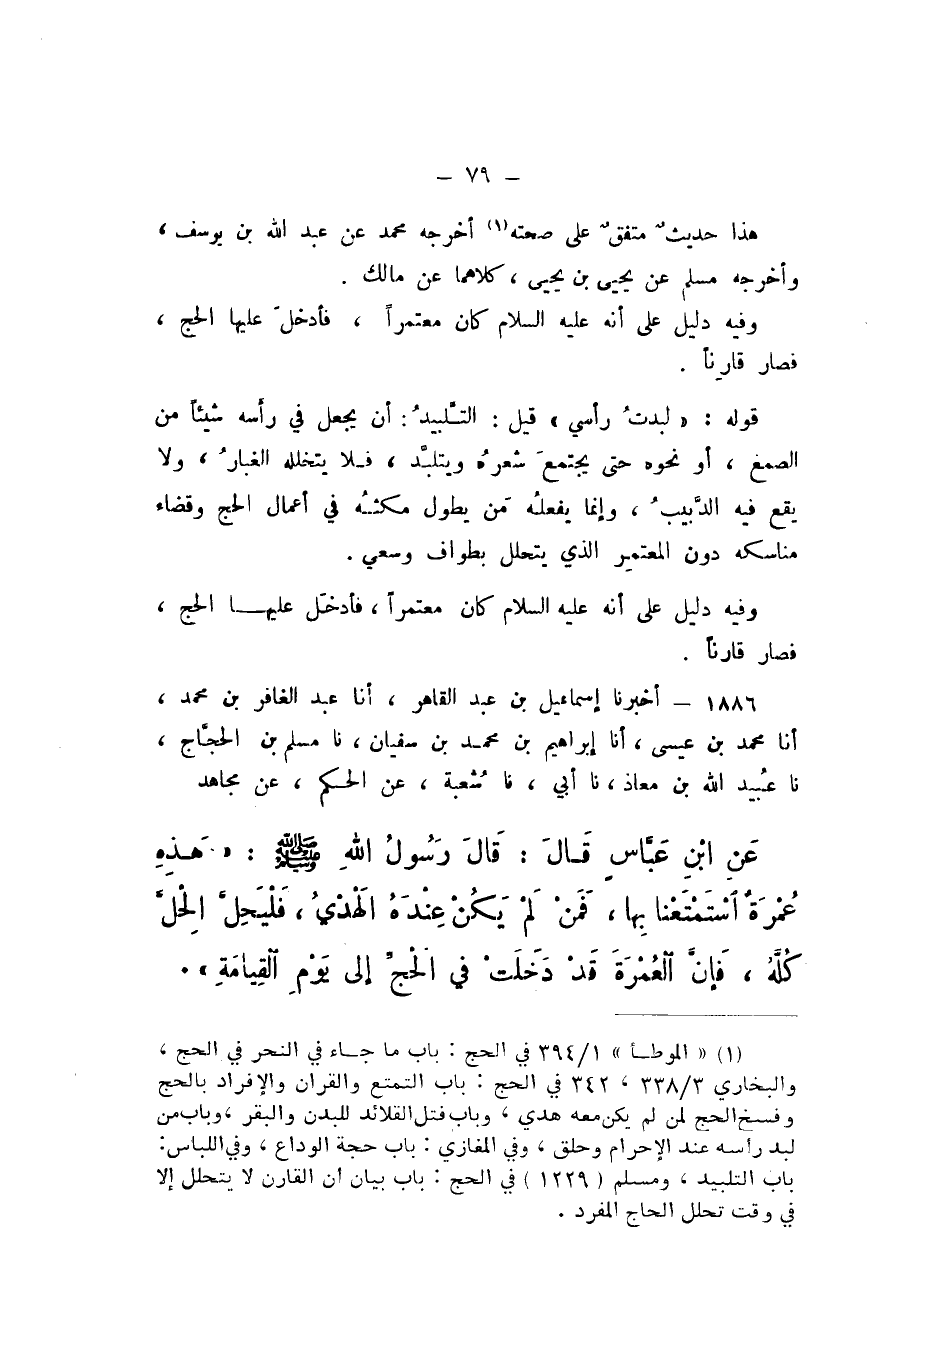 – ٧٩ –
هذا حديثٌ متفقٌ على صحته(١) أخرجه محمد عن عبد الله بن يوسف ،
وأخرجه مسلم عن يحيى بن يحيى ، كلاهما عن مالك .
وفيه دليل على أنه عليه السلام كان معتمراً ، فأدخلَ عليها الحج ،
فصار قارِناً .
قوله : « لبدتُ رأسي » قيل : التَّلبيدُ : أن يجعل في رأسه شيئاً من
الصمغ ، أو نحوه حتى يجتمعَ شعرُه ويتلبَّد ، فـلا يتخلله الغبارُ ، ولا
يقع فيه الدَّبيبُ ، وإنما يفعلُه مَن يطول مكثُـه في أعمال الحج وقضاء
مناسكه دون المعتمِر الذي يتحلل بطواف وسعي .
وفيه دليل على أنه عليه السلام كان معتمراً ، فأدخَل عليهـــا الحج ،
فصار قارناً .
١٨٨٦ – أخبرنا إسماعيل بن عبد القاهر ، أنا عبد الغافر بن محمد ،
أنا محمد بن عيسى ، أنا إبراهيم بن محمـد بن سفيان ، نا مسلم بن الحجَّاج ،
نا عُبيد الله بن معاذ ، نا أبي ، نا شُعبة ، عن الحـكم ، عن مجاهد
عَنِ ابْنِ عَبَّاسٍ قَـالَ : قَالَ رَسُولُ اللهِ ﷺ : « هَـذِهِ
عُمْرَةٌ ٱسْتَمْتَعْنا بِها ، فَمَنْ لَمْ يَكُنْ عِنْدَهُ الهَدْيُ ، فَلْيَحِلَّ الحِلَّ
كُلَّهُ ، فَإِنَّ ٱلْعُمْرَةَ قَدْ دَخَلَتْ في الحَجِّ إلى يَوْمِ ٱلْقِيامَةِ » .
(١) « الموطـأ » ٣٩٤/١ في الحج : باب ما جـاء في النحر في الحج ،
والبخاري ٣٣٨/٣ ، ٣٤٢ في الحج : باب التمتع والقران والإفراد بالحج
وفسخ الحج لمن لم يكن معه هدي ، وباب فتل القلائد للبدن والبقر ، وباب من
لبد رأسه عند الإحرام وحلق ، وفي المغازي : باب حجة الوداع ، وفي اللباس :
باب التلبيد ، ومسلم ( ١٢٢٩ ) في الحج : باب بيان أن القارن لا يتحلل إلا
في وقت تحلل الحاج المفرد .